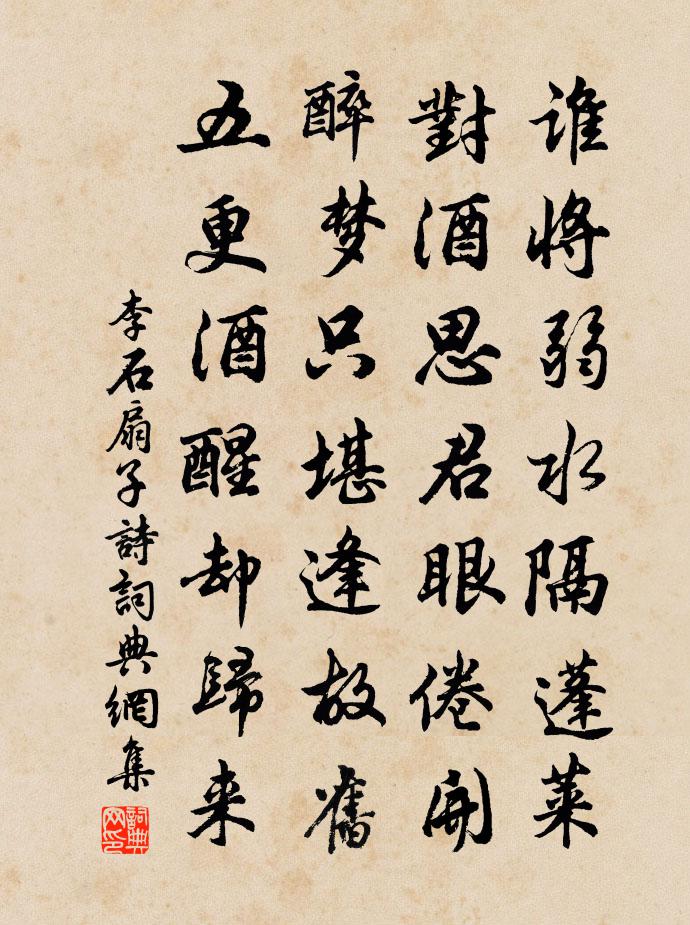 谁将弱水隔蓬莱
對酒思君眼倦開
醉梦只堪逢故舊
五更酒醒却歸来
李石扇子詩詞典網集
詞典网印